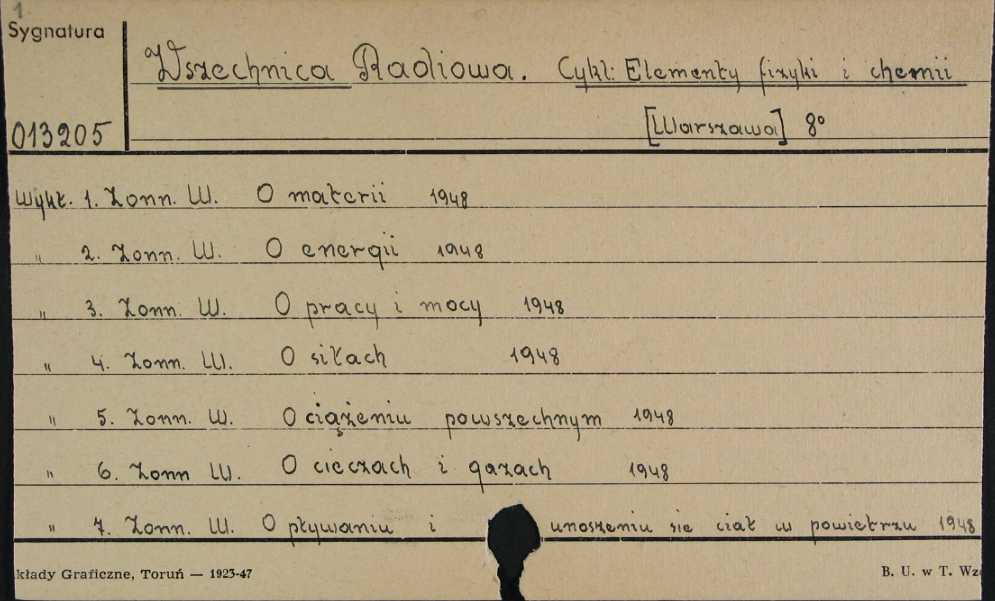 1.
Sygnatura
Wszechnica Radiowa. Cykl: Elementy fizyki i chemii
013205 [Warszawa] 8°
Wykł. 1. Zonn. W. O materii 1948
" 2. Zonn. W. O energii 1948
" 3. Zonn. W. O pracy i mocy 1948
" 4. Zonn. W. O siłach 1948
" 5. Zonn. W. O ciążeniu powszechnym 1948
" 6. Zonn W. O cieczach i gazach 1948
" 7. Zonn. W. O pływaniu i unoszeniu się ciał w powietrzu 1948
kłady Graficzne, Toruń — 1923-47 B. U. w T. Wz